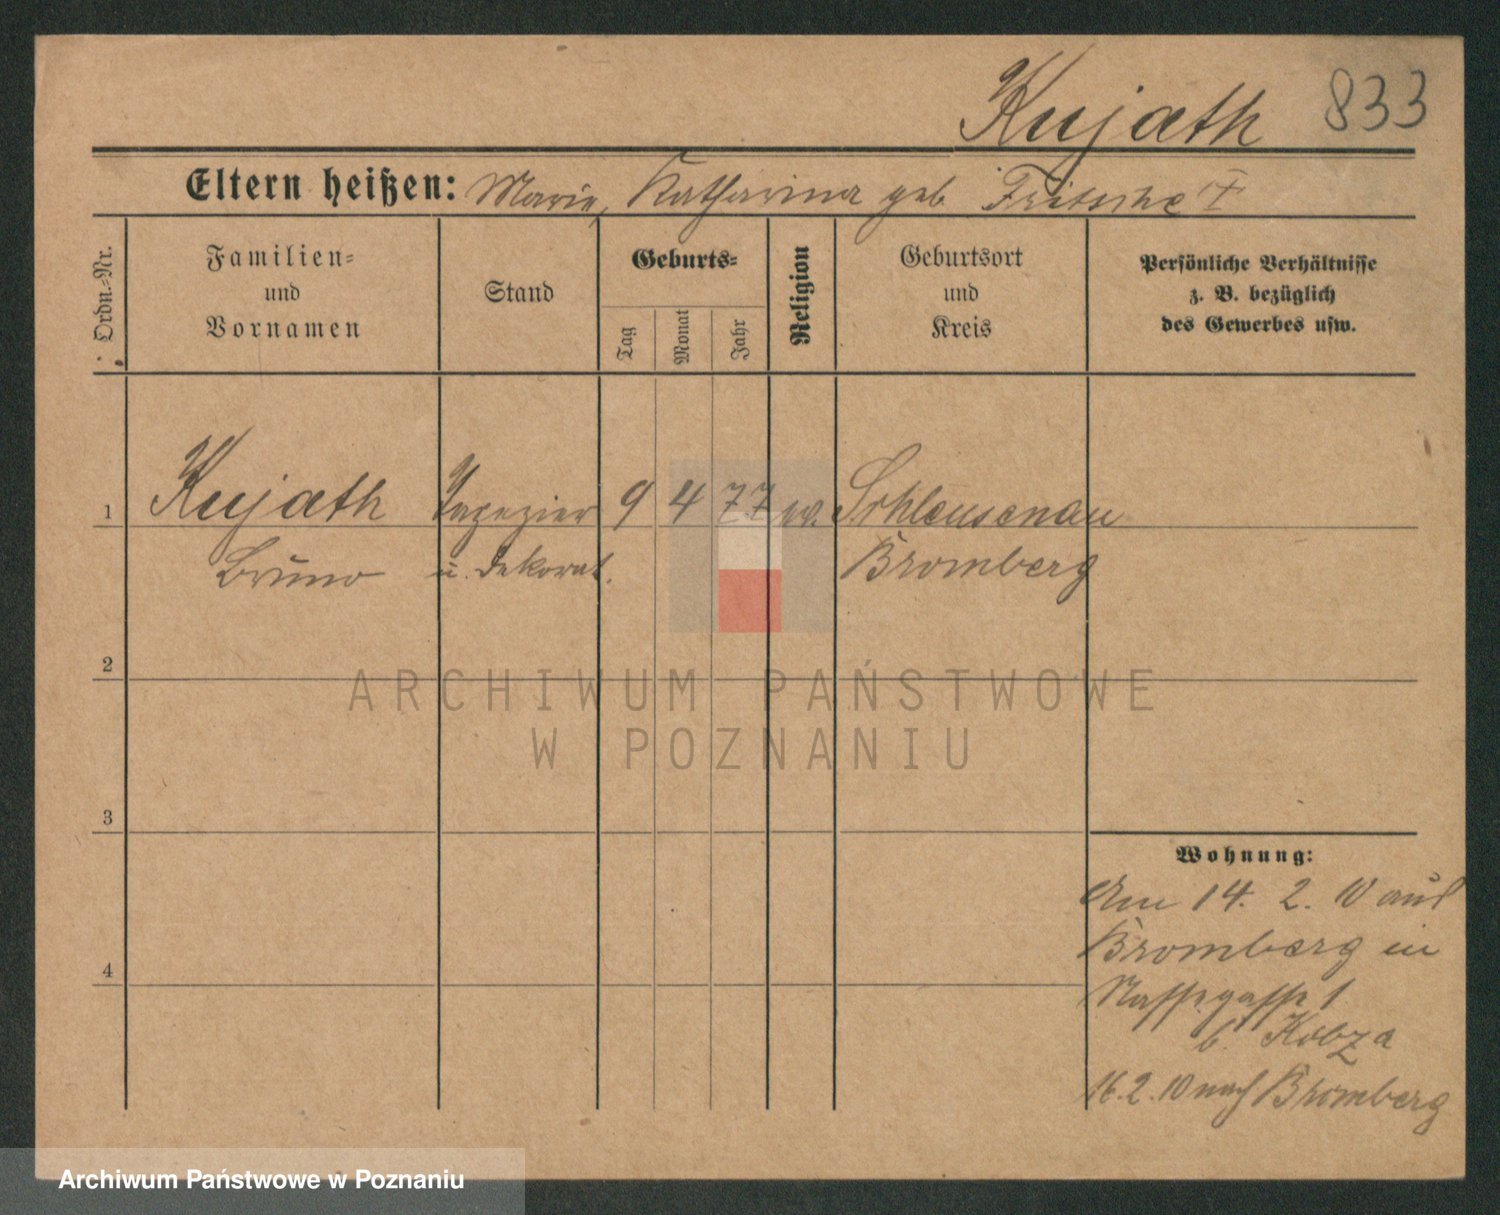 Kujath 833
Eltern heißen: Marie, Katharina geb. Fritsche
Ordn.-Nr.
Familien-
und
Vornamen
Stand
Geburts-
Tag
Monat
Jahr
Religion
Geburtsort
und
Kreis
Persönliche Verhältnisse
z. B. bezüglich
des Gewerbes usw.
1 Kujath Tapezier 9 4 77 Schleusenau
Bruno u. Dekorat. Bromberg
2
3
4
Wohnung:
Am 14. 2. 10 aus
Bromberg in
Nassegasse 1
b. Kobza
16.2.10 nach Bromberg
ARCHIWUM PAŃSTWOWE
W POZNANIU
Archiwum Państwowe w Poznaniu